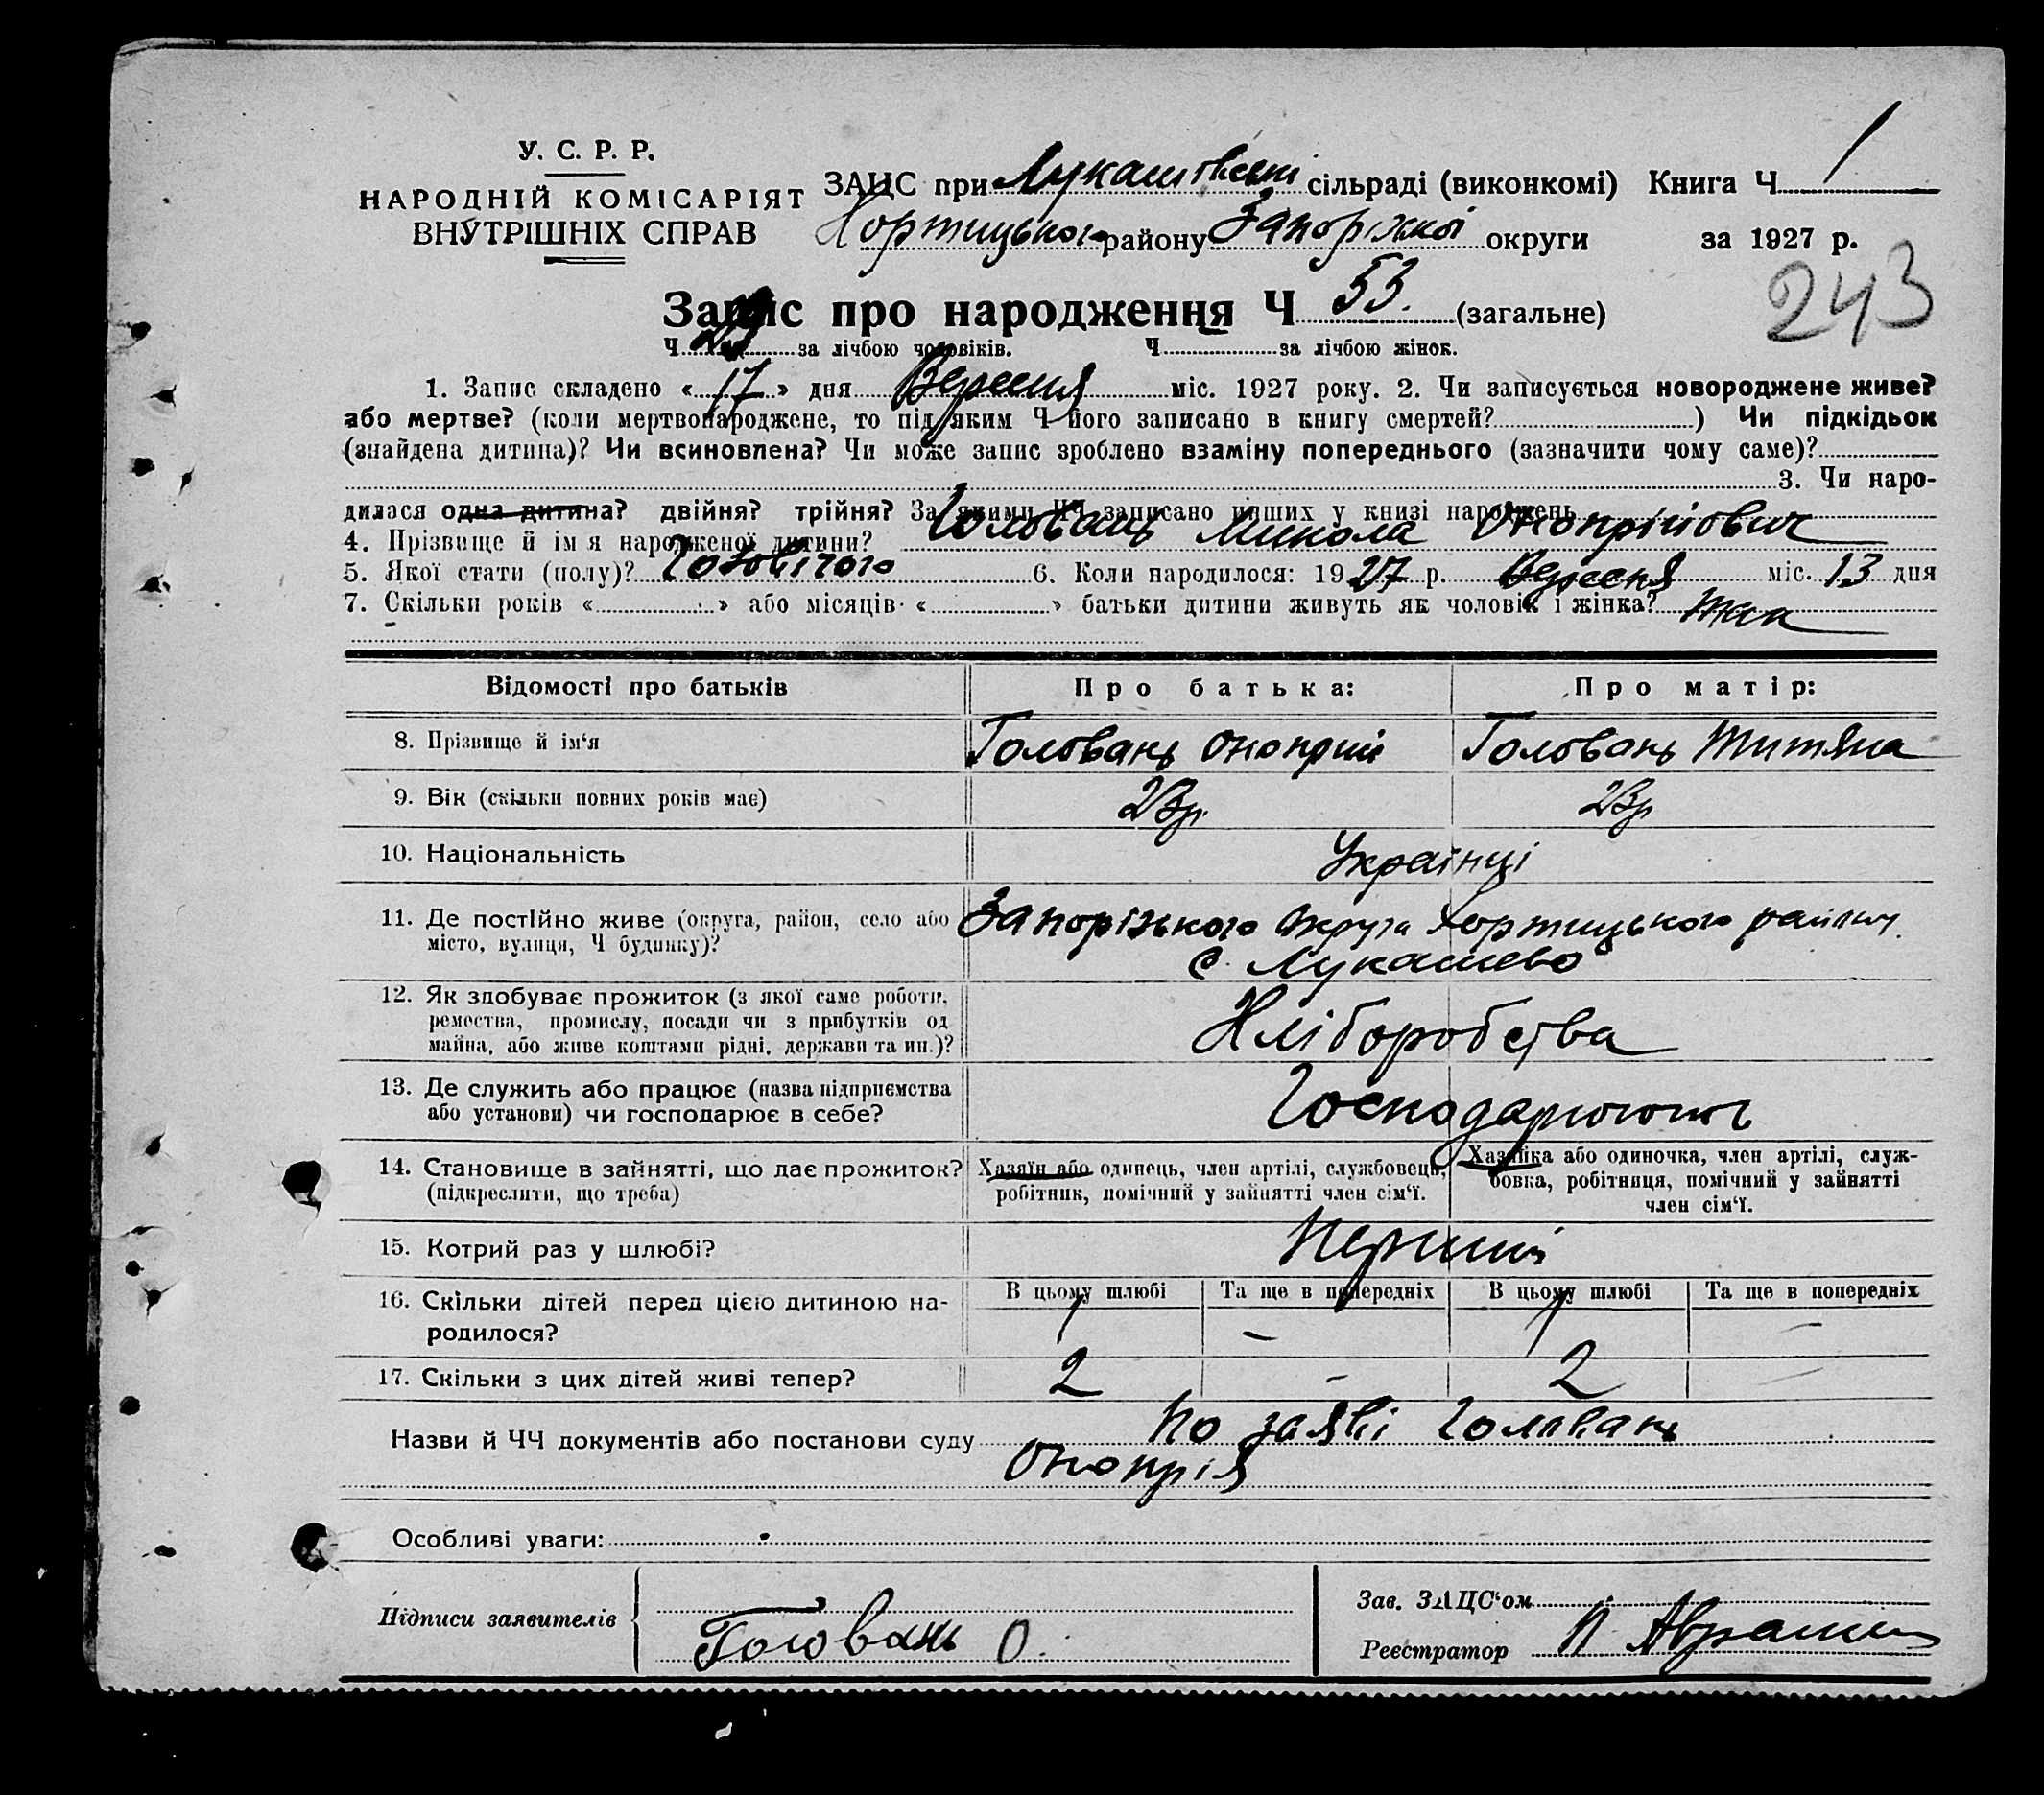 У. С. Р. Р.
НАРОДНІЙ КОМІСАРІЯТ
ВНУТРІШНІХ СПРАВ
ЗАЦС при Лукашівській сільраді (виконкомі) Книга Ч 1
Хортицького району Запоріжкої округи за 1927 р.
243
Запис про народження Ч 53. (загальне)
Ч за лічбою чоловіків. Ч за лічбою жінок.
1. Запис складено « 17 » дня Вересня міс. 1927 року. 2. Чи записується новороджене живе?
або мертве? (коли мертвонароджене, то під яким Ч його записано в книгу смертей? ) Чи підкідьок
(знайдена дитина)? Чи всиновлена? Чи може запис зроблено взаміну попереднього (зазначити чому саме)?
3. Чи наро-
дилася одна дитина? двійня? трійня? За якими ЧЧ записано инших у книзі народжень
4. Прізвище й ім'я народженої дитини? Головань Микола Онопрійович
5. Якої стати (полу)? Чоловічого 6. Коли народилося: 1927 р. Вересня міс. 13 дня
7. Скільки років « » або місяців « » батьки дитини живуть як чоловік і жінка?
Відомості про батьків Про батька: Про матір:
8. Прізвище й ім‘я Головань Онопрій Головань Титяна
9. Вік (скільки повних років має) 23р. 23р
10. Національність Українці
11. Де постійно живе (округа, район, село або Запорізького Округа Хортицького району
місто, вулиця, Ч будинку)? с. Лукашево
12. Як здобуває прожиток (з якої саме роботи,
ремества, промислу, посади чи з прибутків од Хліборобства
майна, або живе коштами рідні, держави та ин.)?
13. Де служить або працює (назва підприємства
або установи) чи господарює в себе? Господарюють
14. Становище в зайнятті, що дає прожиток? Хазяїн або одинець, член артілі, службовець, Хазяйка або одиночка, член артілі, служ-
(підкреслити, що треба) робітник, помічний у зайнятті член сім‘ї. бовка, робітниця, помічний у зайнятті
член сім‘ї.
15. Котрий раз у шлюбі? Перший
16. Скільки дітей перед цією дитиною на- В цьому шлюбі Та ще в попередніх В цьому шлюбі Та ще в попередніх
родилося? 1 – 1 –
17. Скільки з цих дітей живі тепер? 2 – 2 –
Назви й ЧЧ документів або постанови суду По заяві Головань
Онопрія
Особливі уваги:
Підписи заявителів Головань О.
Зав. ЗАЦС‘ом
Реєстратор